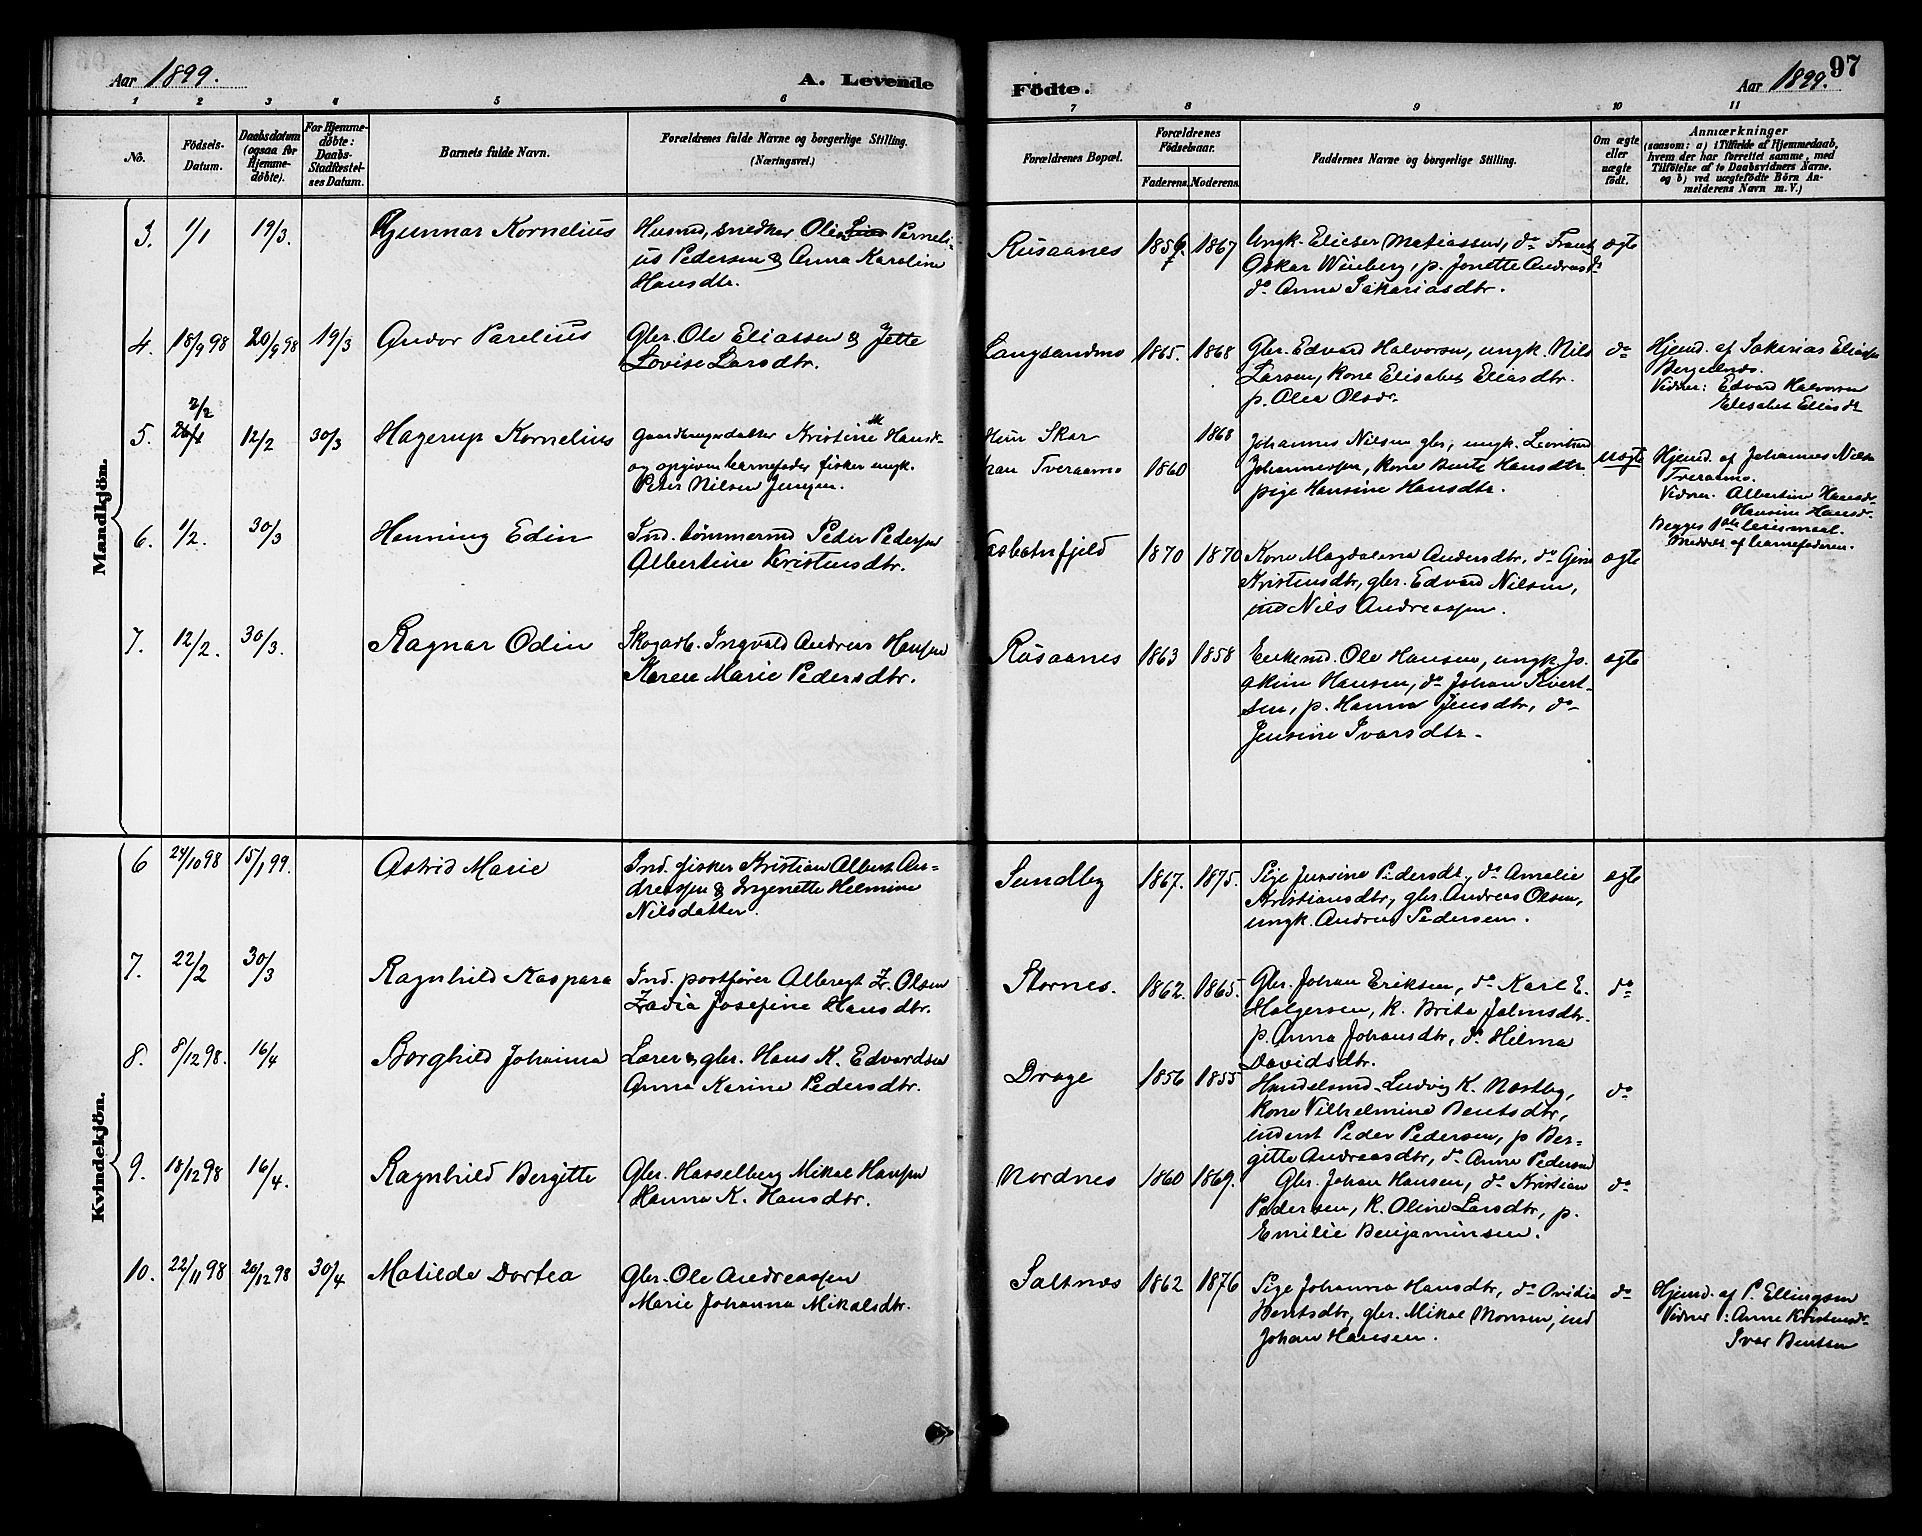 Aar 1899.
A. Levende
Födte.
Aar 1899.
97
1 2 3 4 5 6 7 8 9 10 11
No.
Födsels-
Datum.
Daabsdatum
(ogsaa for
Hjemme-
döbte).
For Hjemme-
döbte:
Daabs-
Stadfæstel-
ses Datum.
Barnets fulde Navn.
Forældrenes fulde Navne og borgerlige Stilling.
(Næringsvei.)
Forældrenes Bopæl.
Forældrenes
Födselsaar.
Faderens. Moderens.
Faddernes Navne og borgerlige Stilling.
Om ægte
eller
uægte
født.
Anmærkninger
(saasom: a) i Tilfælde af Hjemmedaab,
hvem der har forrettet samme, med
Tilföielse af to Daabsvidners Navne.
og b) ved uægtefödte Börn An-
melderens Navn m. V.)
Mandkjön.
3. 1/1 19/3. Gunnar Kornelius
Husmd, snedker Ole Perneli-
us Pedersen & Anna Karoline
Hansdtr.
Rusaanes 1867
Ungk. Elieser Matiassen, do Frants
Oskar Weinberg, p. Jonette Andreasd
do Anna Sakariasdtr.
ægte
4. 18/9 98 20/9 98 19/3 Andor Parelius
Gbr. Ole Eliassen & Jette
Lovise Larsdtr.
Langsandmo 1865. 1868
Gbr. Edvard Halvorsen, ungk. Nils
Larsen, kone Elisabet Eliasdtr.
p. Olea Olsdr.
do
Hjemd. af Sakarias Eliassen
Vidner: Edvard Halvorsen
Elisabet Eliasdr
5. 2/2 12/2 30/3 Hagerup Kornelius
Gaardbrugerdatter Kristine Hansdr
og opgiven barnefader fisker ungk.
Peter Nilsen
Hun Skar
han Tveraamo 1860 1868
Johannes Nilsen gbr, ungk.
Johannessen, kone Berte Hansdtr
pige Hansine Hansdtr.
uægte
Hjemd. af Johannes Nilsen
Tveraamo.
Vidner. Albertine Hansdr
Hansine Hansdr.
Begges 1ste leiermaal.
Meddelt af barnefaderen.
6. 1/2. 30/3 Henning Edin
Ind. tömmermd Peder Pedersen
Albertine Kristensdtr.
1870 1870
Kone Magdalena Andersdtr, do Gjine
Kristensdtr, gbr. Edvard Nilsen,
ind Nils Andreassen.
ægte
7. 12/2. 30/3. Ragnar Odin
Skogarb. Ingvald Andreas Hansen
Karen Marie Pedersdtr.
Rusaanes 1863 1858
Enkemd. Ole Hansen, ungk. Jo-
akim Hansen, do Johan Sivert-
sen, p. Hanna Jensdtr, do
Jensine Ivarsdtr.
ægte
Kvindekjön.
6 24/10 98 15/1 99. Astrid Marie
Ind. fisker Kristian Albert An-
dreassen & Ingenette Helmine
Nilsdatter.
Sundby 1867. 1875.
Pige Jensine Pedersdt., do Amalie
Kristiansdtr, gbr. Andreas Olsen,
ungk. Andreas Pedersen.
ægte
7. 22/2 30/3 Ragnhild Kaspara
Ind. postförer Albregt Z. Olsen
Zadia Josefine Hansdtr.
Stornes. 1862. 1865.
Gbr. Johan Eriksen, do Karl E.
Holgersen, k. Brita
p. Anna Johansdtr, do Helma
Davidsdtr.
do
8. 8/12 98. 16/4 Borghild Johanna
Lærer & gbr. Hans K. Edvardsen
Anna Karine Pedersdtr.
Drage 1856 1855
Handelsmd. Ludvig K. Næstby,
kone Vilhelmine Bentsdtr,
inderst Peder Pedersen, p Ber-
gitte Andreasdtr, do Anne Pedersen
do
9. 18/12 98 16/4. Ragnhild Bergitte
Gbr. Hasselberg Mikal Hansen
Hanna K. Hansdtr.
Nordnes 1860 1869.
Gbr. Johan Hansen, do Kristian
Pedersen, k. Oline Larsdtr, p.
Emilie Benjaminsen.
do
10. 22/11 98 20/12 98 30/4 Matilde Dortea
Gbr. Ole Andreassen
Marie Johanna Mikalsdtr.
Saltnes 1862 1876
Pige Johanna Hansdtr, do Ovidia
Bentsdtr, gbr. Mikal Monsen, ind
Johan Hansen.
do
Hjemd. af P. Ellingsen
Vidner: Anne Kristensdr
Ivar Bentsen